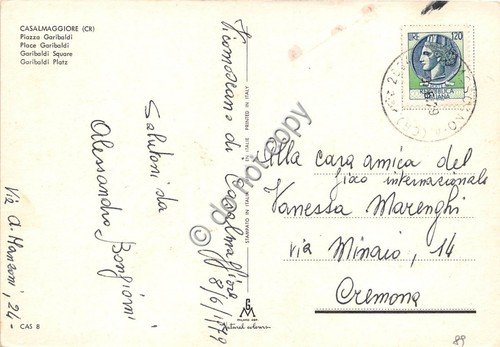 CASALMAGGIORE (CR)
Piazza Garibaldi
Place Garibaldi
Garibaldi Square
Garibaldi Platz
Vicomoscano di Casalmaggiore
8/6/1979
Saluti da
Alessandro Bongiorni
Via A. Manzoni, 24
CAS 8
STAMPATO IN ITALIE PRINTED IN ITALY
GM
Natural colours
LIRE 120
Alla cara amica del
fixo internazionale
Vanessa Marenghi
via Mincio, 14
Cremona
89
©